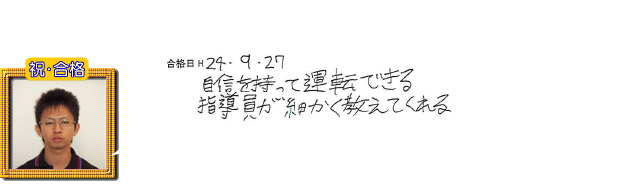 祝・合格
合格日 H 24・9・27
自信を持って運転できる
指導員が細かく教えてくれる